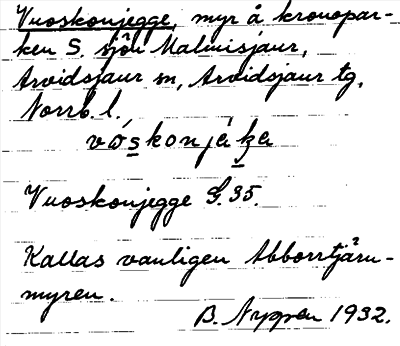 Vuoskonjegge, myr å kronopar-
ken S. sjön Malmisjaur,
Arvidsjaur sn, Arvidsjaur tg,
Norrb. l.
Vuoskonjegge G.35.
Kallas vanligen Abborrtjärn-
myren.
B. Nygren 1932.